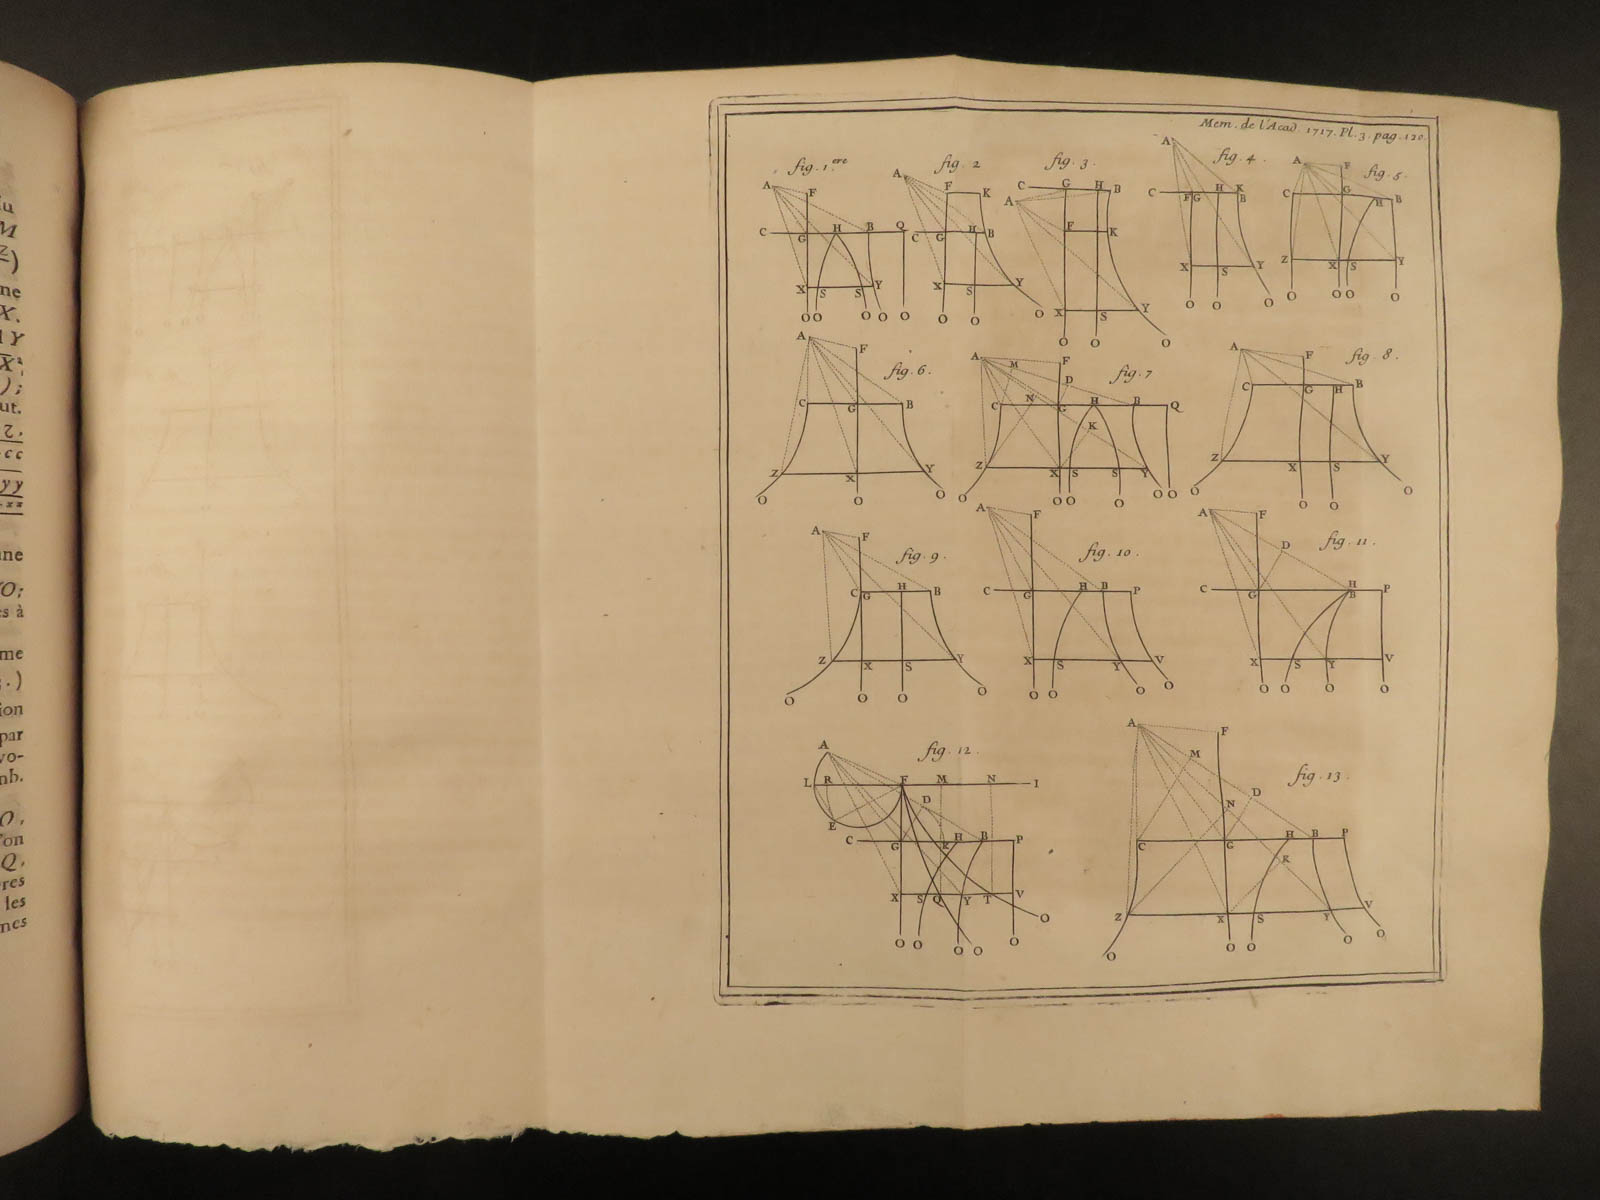 u
M
z)
ne
X.
Y
X²
);
ut.
2.
cc
yy
zz
une
O;
s à
me
.)
ion
par
vo-
nb.
O,
'on
Q,
res
les
nes
Mem. de l'Acad. 1717. Pl. 3. pag. 120.
fig. 1.ere
A F
C G H B Q
X S S Y
O O O O O
fig. 2
A F K
C G H B
X S Y
O O O
fig. 3.
C G H B
A
F K
X S Y
O O O
fig. 4.
A
C F G H K
B
X S Y
O O O
fig. 5.
A F
C G H B
Z X S Y
O O O O
fig. 6.
A F
C G B
Z X Y
O O O
fig. 7
A M F
D
C N G H B Q
K
Z X S S Y
O O O O O O
fig. 8.
A F
C G H B
Z X S Y
O O O O
fig. 9.
A F
C G H B
Z X S Y
O O O O
fig. 10.
A F
C G H B P
X S Y V
O O O O
fig. 11.
A F
D
C G H P
B
X S Y V
O O O O
fig. 12.
A
L R F M N I
D
E
C G K H B P
X S Q Y T V
O
O O O O O
fig. 13.
A F
M
N D
C G H B P
K
Z X S Y V
O O O O O